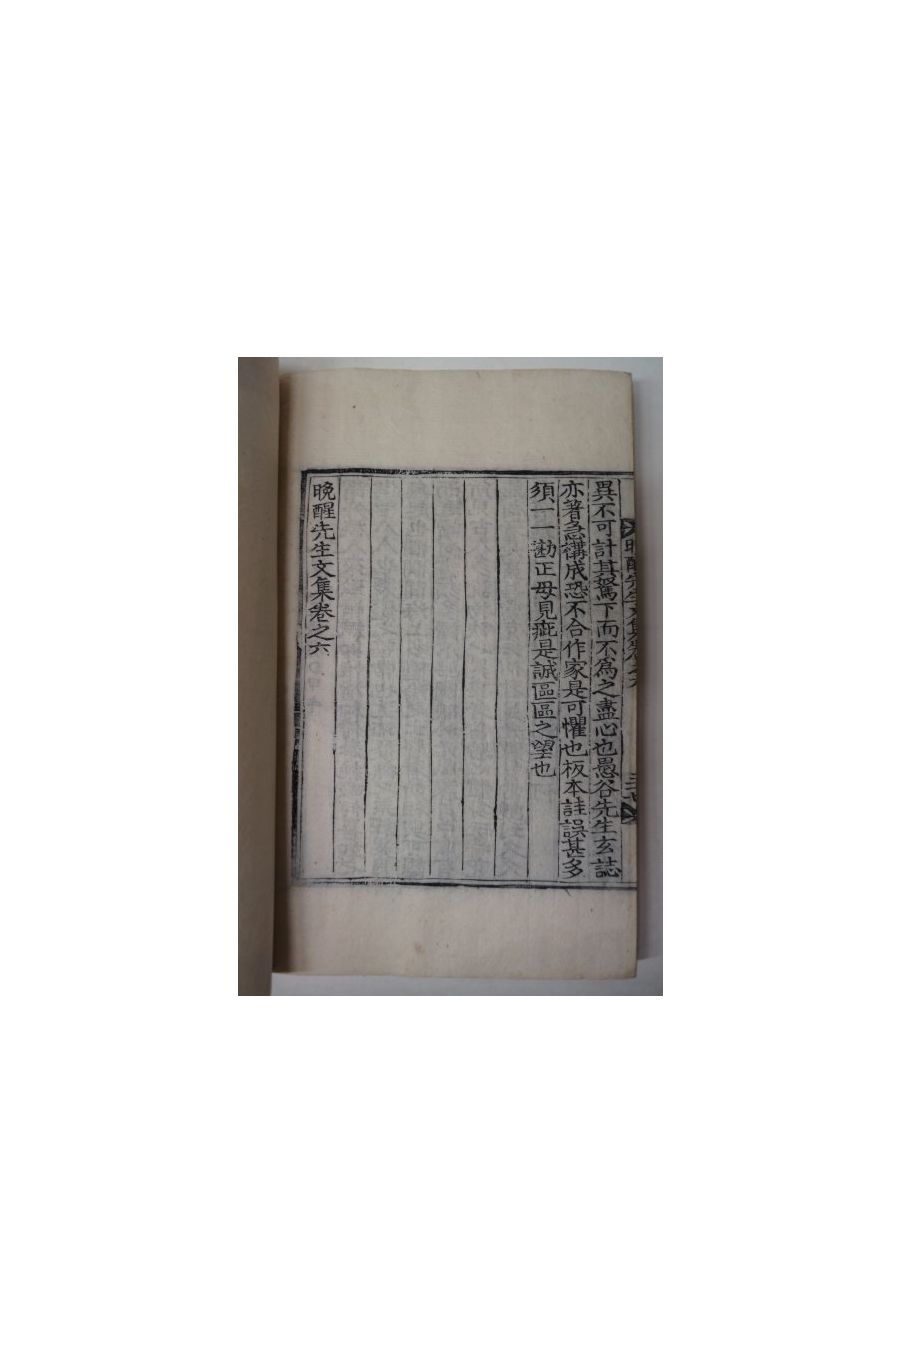 晩醒先生文集卷之六
異不可計其駑下而不爲之盡心也愚谷先生玄誌
亦著急構成恐不合作家是可懼也板本註誤甚多
須一一勘正毋見疵是誠區區之望也
晩醒先生文集卷之六